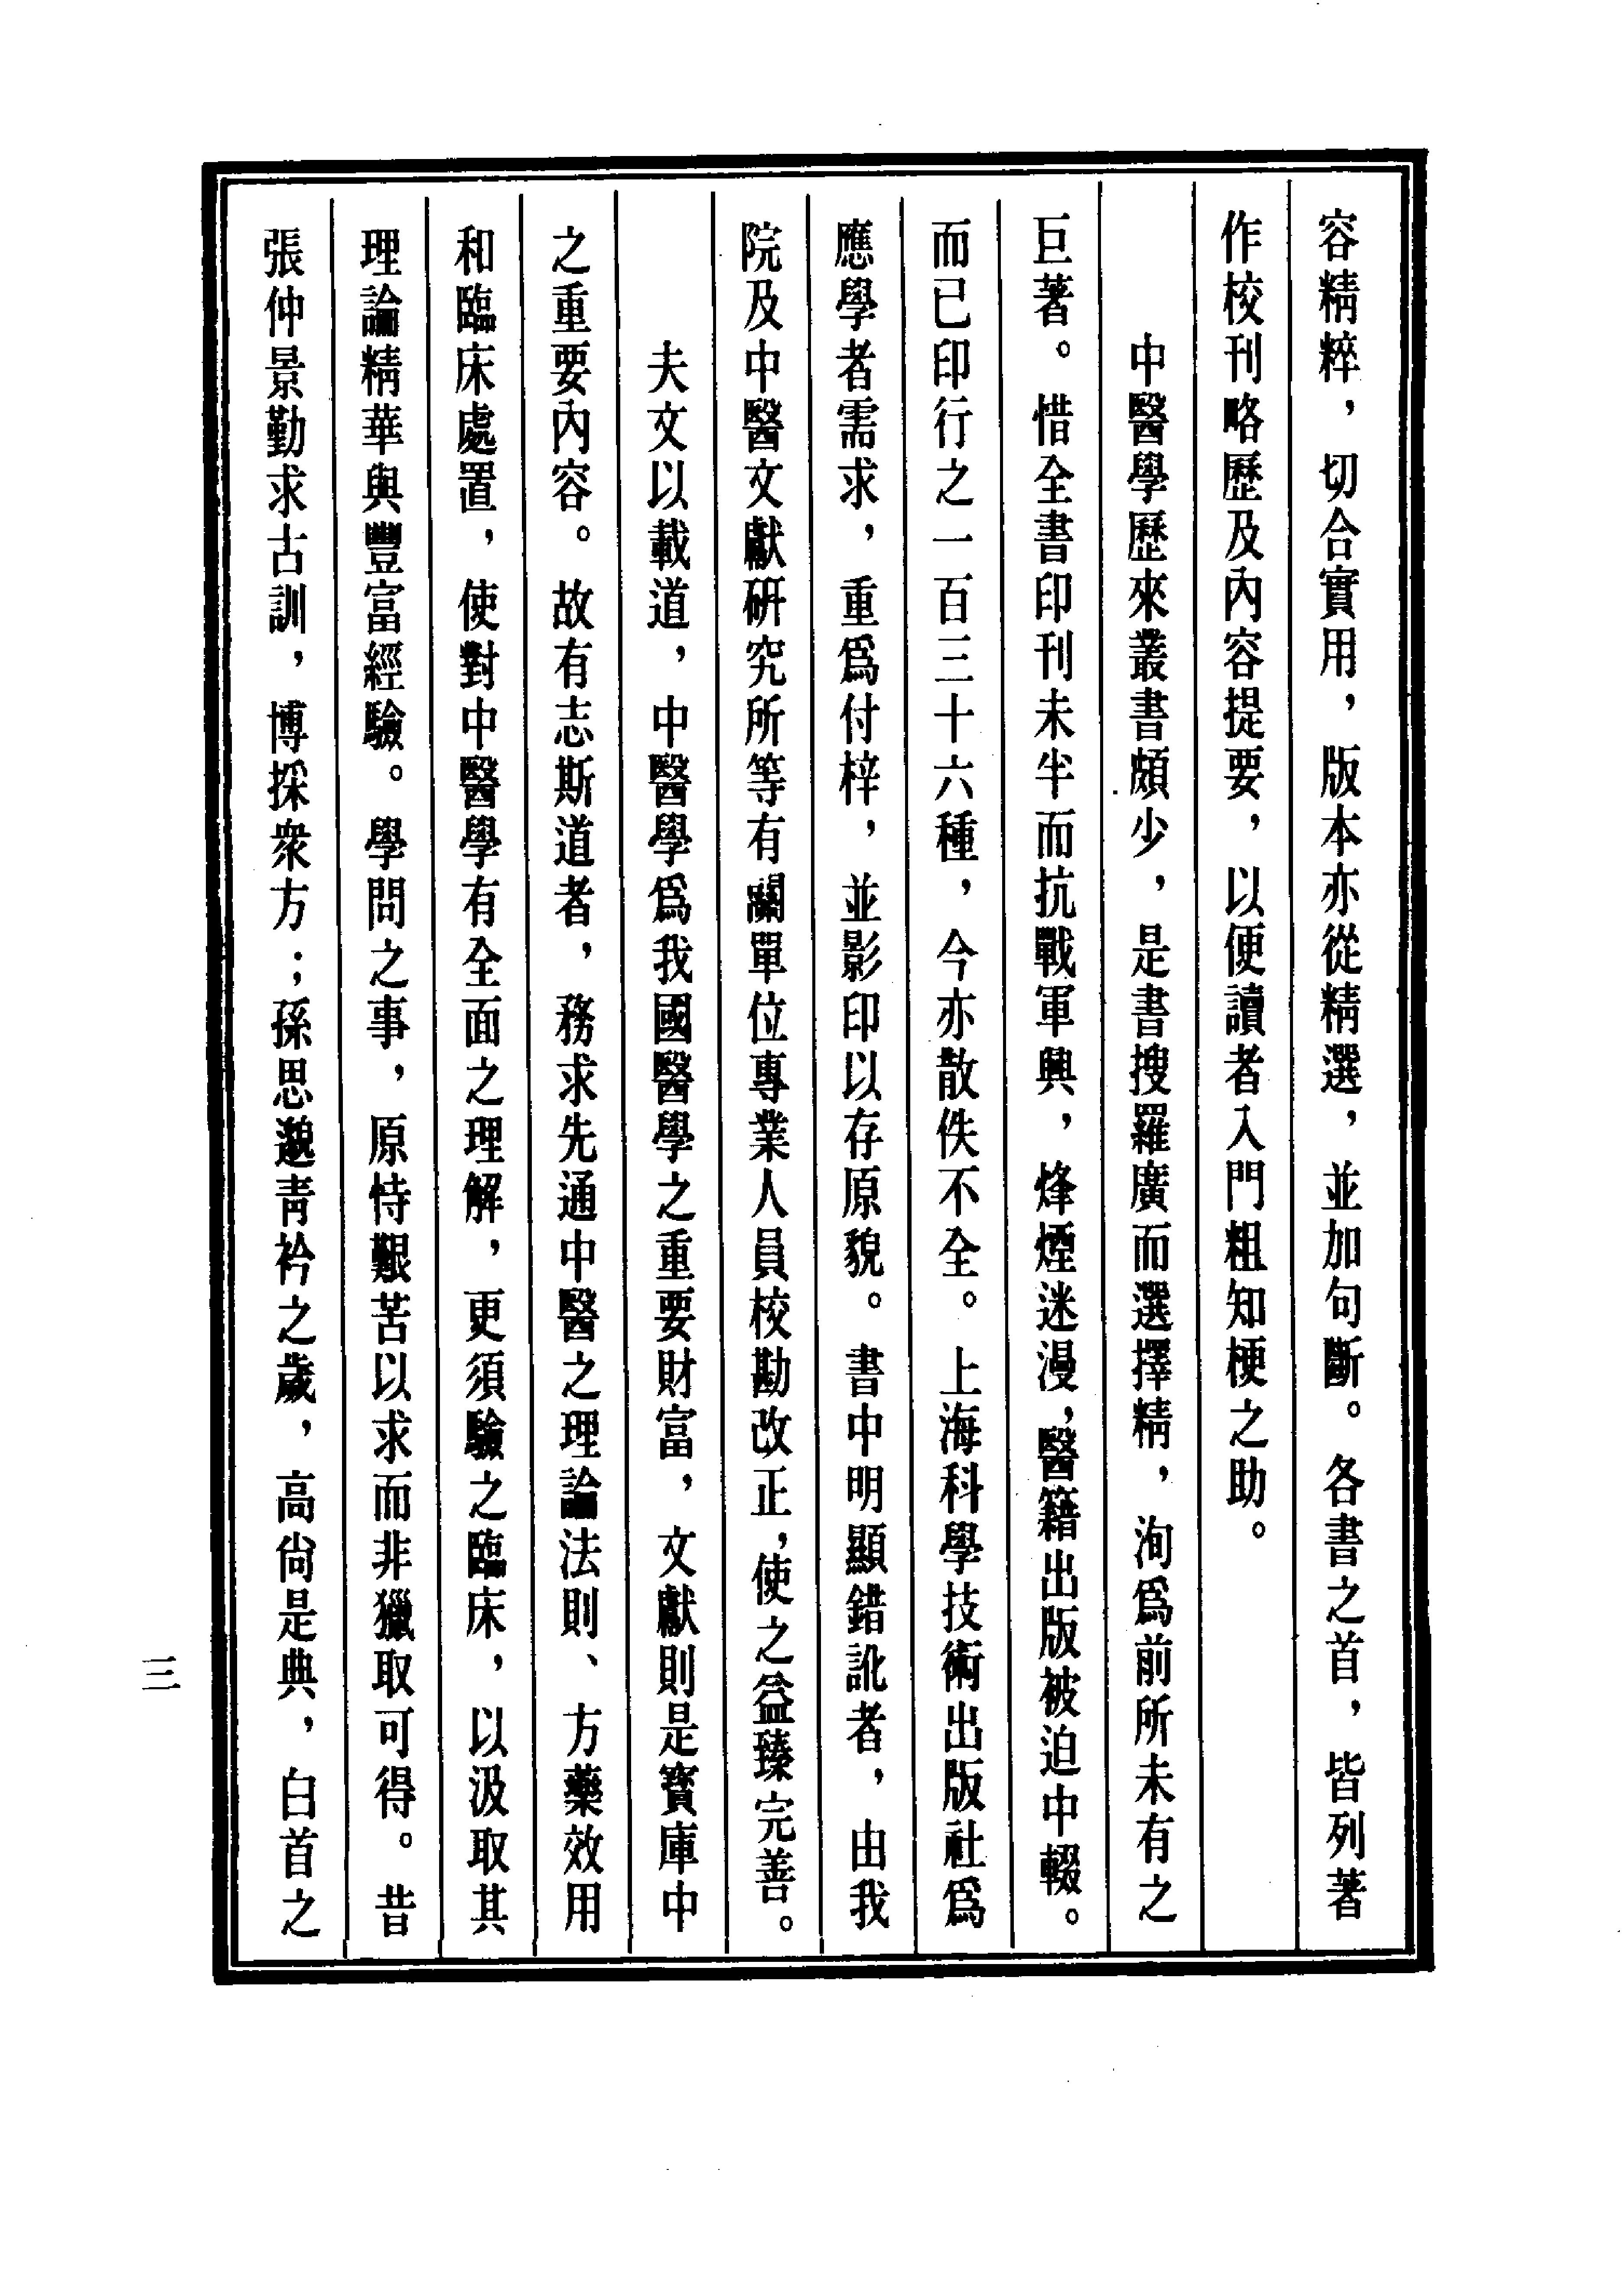 容精粹，切合實用，版本亦從精選，並加句斷。各書之首，皆列著
作校刊略歷及內容提要，以便讀者入門粗知梗之助。
中醫學歷來叢書頗少，是書搜羅廣而選擇精，洵爲前所未有之
巨著。惜全書印刊未半而抗戰軍興，烽煙迷漫，醫籍出版被迫中輟。
而已印行之一百三十六種，今亦散佚不全。上海科學技術出版社爲
應學者需求，重爲付梓，並影印以存原貌。書中明顯錯訛者，由我
院及中醫文獻研究所等有關單位專業人員校勘改正，使之益臻完善。
夫文以載道，中醫學爲我國醫學之重要財富，文獻則是寳庫中
之重要內容。故有志斯道者，務求先通中醫之理論法則、方藥效用
和臨床處置，使對中醫學有全面之理解，更須驗之臨床，以汲取其
理論精華與豐富經驗。學問之事，原恃艱苦以求而非獵取可得。昔
張仲景勤求古訓，博採衆方；孫思邈青衿之歲，高尚是典，白首之
三